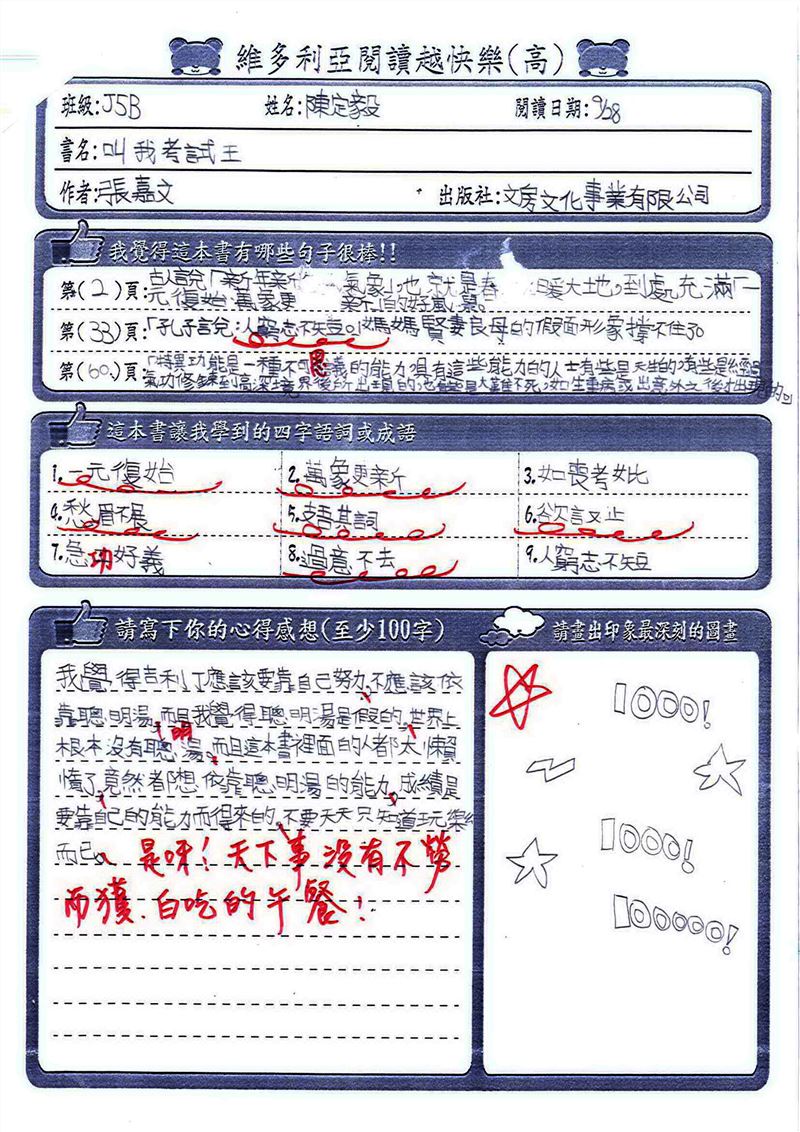 維多利亞閱讀越快樂(高)
班級:J5B 姓名:陳定毅 閱讀日期:9/28
書名:叫我考試王
作者:張嘉文 出版社:文房文化事業有限公司
我覺得這本書有哪些句子很棒!!
第(2)頁:古人說「新年新 氣象」,也就是春 暖大地,到處充滿「一
元復始、萬象更 新」的好風景。
第(33)頁:「孔子言說:人窮志不短。」媽媽賢妻良母的假面形象撐不住了。
第(60)頁:「特異功能是一種不可思議的能力,具有這些能力的人士有些是天生的,有些是經由
氣功修練到高深境界後所出現的,也有些是大難不死,如生重病或出意外之後才出現的。」
這本書讓我學到的四字語詞或成語
1.一元復始 2.萬象更新 3.如喪考妣
4.愁眉不展 5.支唔其詞 6.欲言又止
7.急功好義 8.過意不去 9.人窮志不短
請寫下你的心得感想(至少100字) 請畫出印象最深刻的圖畫
我覺得吉利丁應該要靠自己努力,不應該依
靠聰明湯,而且我覺得聰明湯是假的,世界上
根本沒有聰明湯。而且這本書裡面的人都太懶
惰了,竟然都想依靠聰明湯的能力,成績是
要靠自己的能力而得來的,不要天天只知道玩樂
而已。是呀!天下事沒有不勞
而獲、白吃的午餐!
1000!
1000!
100000!